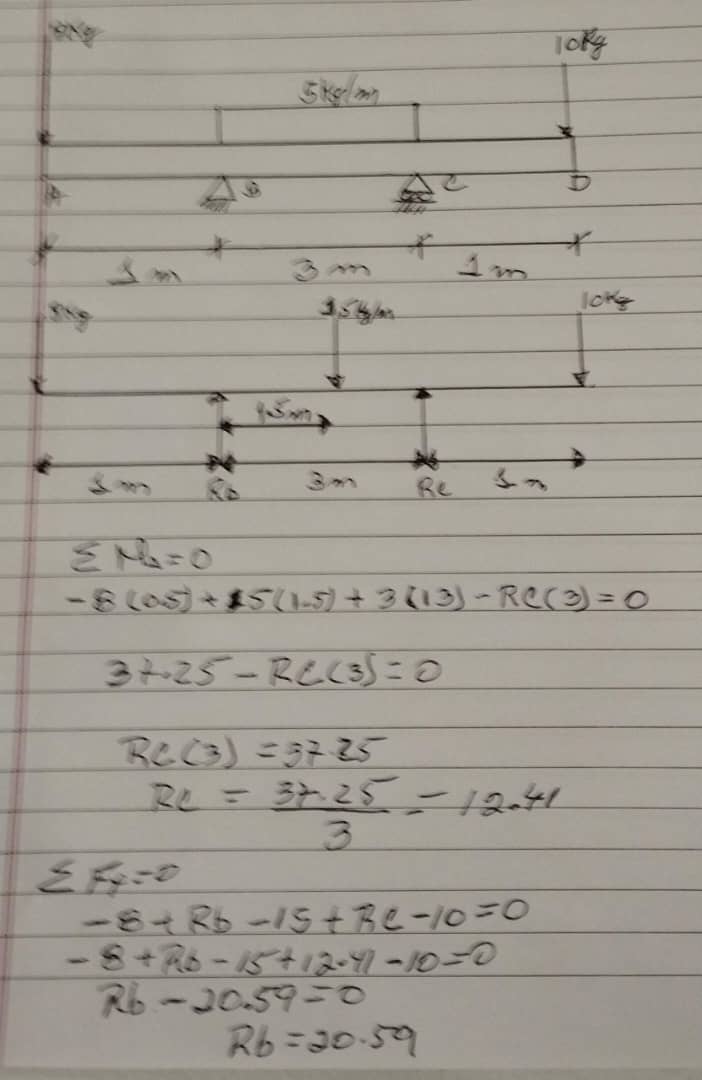 8Kg
10Kg
5Kg/m
A B C D
1m 3m 1m
8Kg 15Kg/m 10Kg
1.5m
1m Rb 3m Rc 1m
ΣMb=0
-8(0.5)+15(1.5)+3(13)-RC(3)=0
37.25-RC(3)=0
RC(3)=37.25
RC = 37.25/3 = 12.41
ΣFy=0
-8+Rb-15+RC-10=0
-8+Rb-15+12.41-10=0
Rb-20.59=0
Rb=20.59